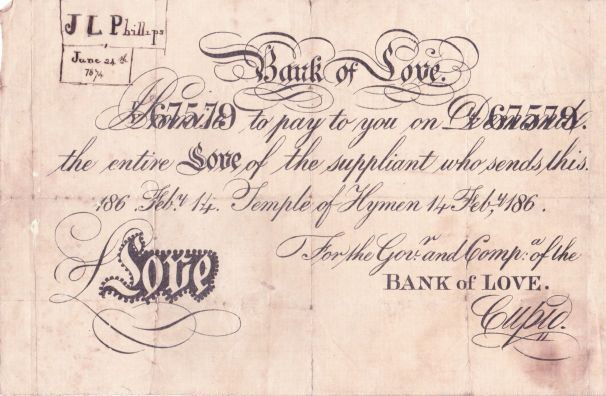 J L Phillips
June 24th
Bank of Love.
I Promise 67579 to pay to you on Demand.
the entire Love of the suppliant who sends this.
186 . Feb.y 14. Temple of Hymen 14 Feb.y 186 .
For the Gov.r and Comp.a of the
BANK of LOVE.
£ Love
Cupid.